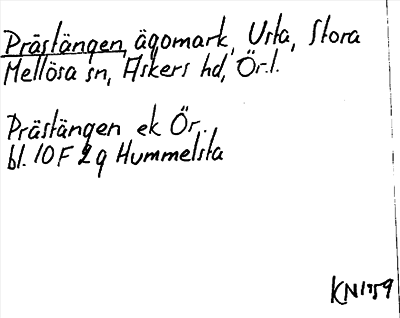 Prästängen, ägomark, Usta, Stora
Mellösa sn, Askers hd, Ör.l.
Prästängen ek Ör.
bl. 10F 2g Hummelsta
KN1959